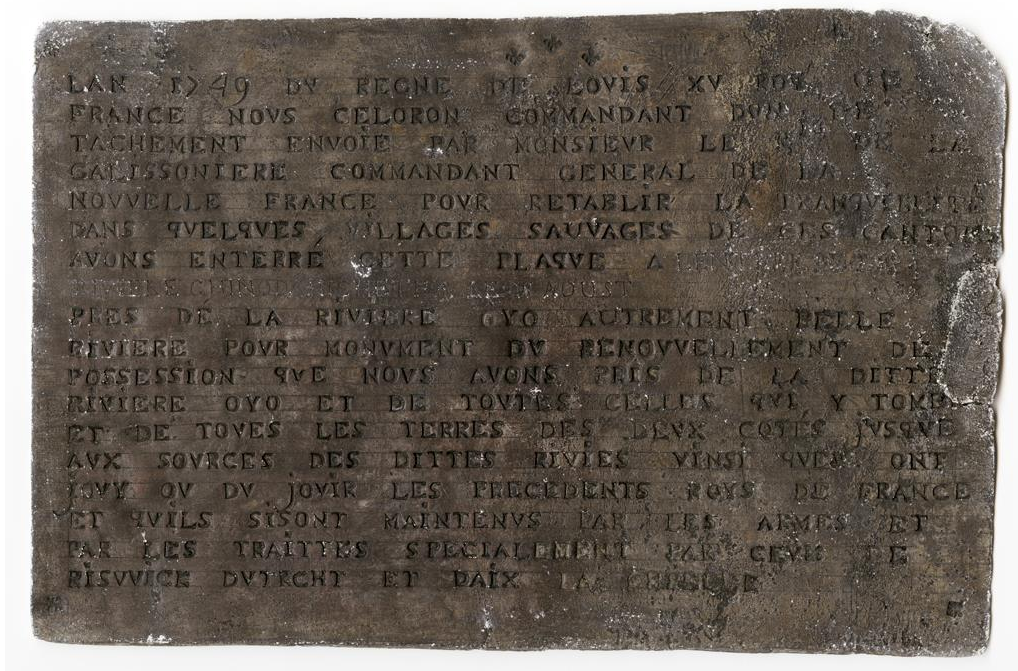 LAN 1749 DV REGNE DE LOVIS XV ROY DE
FRANCE NOVS CELORON COMMANDANT DVN DE
TACHEMENT ENVOIE PAR MONSIEVR LE DE LA
GALISSONIERE COMMANDANT GENERAL DE LA
NOVVELLE FRANCE POVR RETABLIR LA TRANQVILLITE
DANS QVELQVES VILLAGES SAUVAGES DE CES CANTONS
AVONS ENTERRÉ CETTE PLAQVE A
AOUST
PRES DE LA RIVIERE OYO AUTREMENT BELLE
RIVIERE POVR MONVMENT DV RENOVVELLEMENT DE
POSSESSION QVE NOVS AVONS PRIS DE LA DITTE
RIVIERE OYO ET DE TOVTES CELLES QVE Y TOMBE
ET DE TOVES LES TERRES DES DEVX COTES JVSQVE
AVX SOVRCES DES DITTES RIVIES VINSI QVEN ONT
JOVY OV DV JOVIR LES PRECEDENTS ROYS DE FRANCE
ET QVILS SISONT MAINTENVS PAR LES ARMES ET
PAR LES TRAITTES SPECIALEMENT PAR CEVX DE
RISVVICK DVTRCHT ET DAIX LA